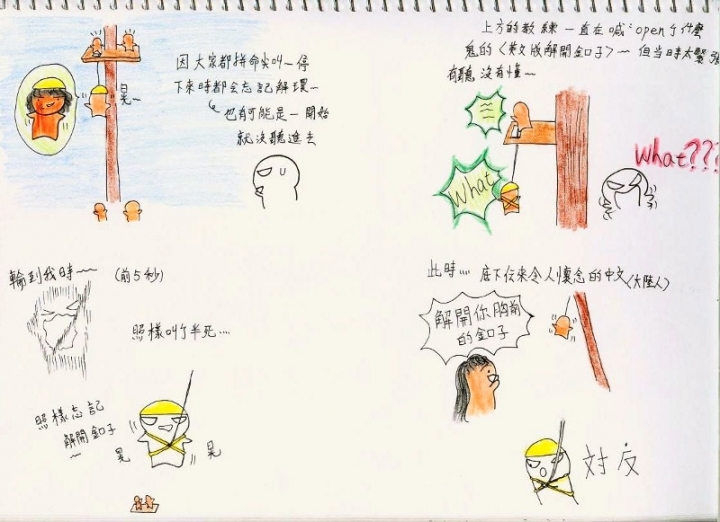 因大家都拼命尖叫~停
下來時都会忘記解環~
也有可能是一開始
就沒聽進去
晃~
上方的教練一直在喊:open了什麼
鬼的〈英文版解開釦子〉~但当時太緊張
有聽沒有懂~
What
What???
輪到我時~~ (前5秒)
照樣叫了半死...
照樣忘記
解開釦子
~
晃
晃
此時... 底下伝來令人懷念的中文(大陸人)
解開你胸前
的釦子
対反